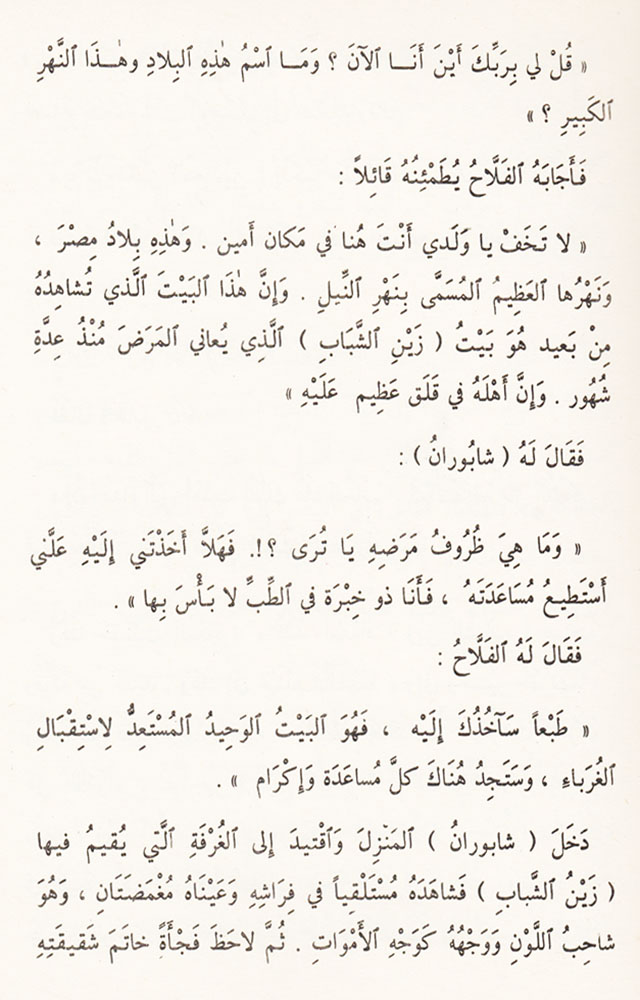 « قُلْ لي بِرَبِّكَ أَيْنَ أَنَا ٱلآنَ ؟ وَمَا ٱسْمُ هٰذِهِ ٱلبِلادِ وهٰذَا ٱلنَّهْرِ
ٱلكَبِيرِ ؟ »
فَأَجَابَهُ ٱلفَلَّاحُ يُطَمْئِنُهُ قَائِلاً :
« لا تَخَفْ يا وَلَدي أَنْتَ هُنا في مَكان أَمين . وَهٰذِهِ بِلادُ مِصْرَ ،
وَنَهْرُها ٱلعَظِيمُ ٱلمُسَمَّى بِنَهْرِ ٱلنِّيلِ . وَإِنَّ هٰذَا ٱلبَيْتَ ٱلَّذي تُشاهِدُهُ
مِنْ بَعيد هُوَ بَيْتُ ( زَيْنِ ٱلشَّبَابِ ) ٱلَّذِي يُعاني ٱلمَرَضَ مُنْذُ عِدَّةِ
شُهُور . وَإِنَّ أَهْلَهُ في قَلَق عَظِيم عَلَيْهِ »
فَقَالَ لَهُ ( شابُورانُ ) :
« وَمَا هِيَ ظُرُوفُ مَرَضِهِ يَا تُرَى ؟!. فَهَلاَّ أَخَذْتَني إِلَيْهِ عَلَّني
أَسْتَطِيعُ مُسَاعَدَتَهُ ، فَأَنَا ذو خِبْرَة في ٱلطِّبِّ لا بَأْسَ بِها » .
فَقَالَ لَهُ ٱلفَلَّاحُ :
« طَبْعاً سَآخُذُكَ إِلَيْه ، فَهُوَ ٱلبَيْتُ ٱلوَحِيدُ ٱلمُسْتَعِدُّ لِاسْتِقْبَالِ
ٱلغُرَباءِ ، وَسَتَجِدُ هُنَاكَ كلَّ مُساعَدَة وَإِكْرَام » .
دَخَلَ ( شابورانُ ) ٱلمَنْزِلَ وَٱقْتيدَ إِلى ٱلغُرْفَةِ ٱلَّتي يُقيمُ فيها
( زَيْنُ ٱلشَّبابِ ) فَشاهَدَهُ مُسْتَلْقِياً في فِرَاشِهِ وَعَيْنَاهُ مُغْمَضَتَانِ ، وَهُوَ
شاحِبُ ٱللَّوْنِ وَوَجْهُهُ كَوَجْهِ ٱلأَمْوَاتِ . ثُمَّ لاحَظَ فَجْأَةً خاتَمَ شَقيقَتِهِ